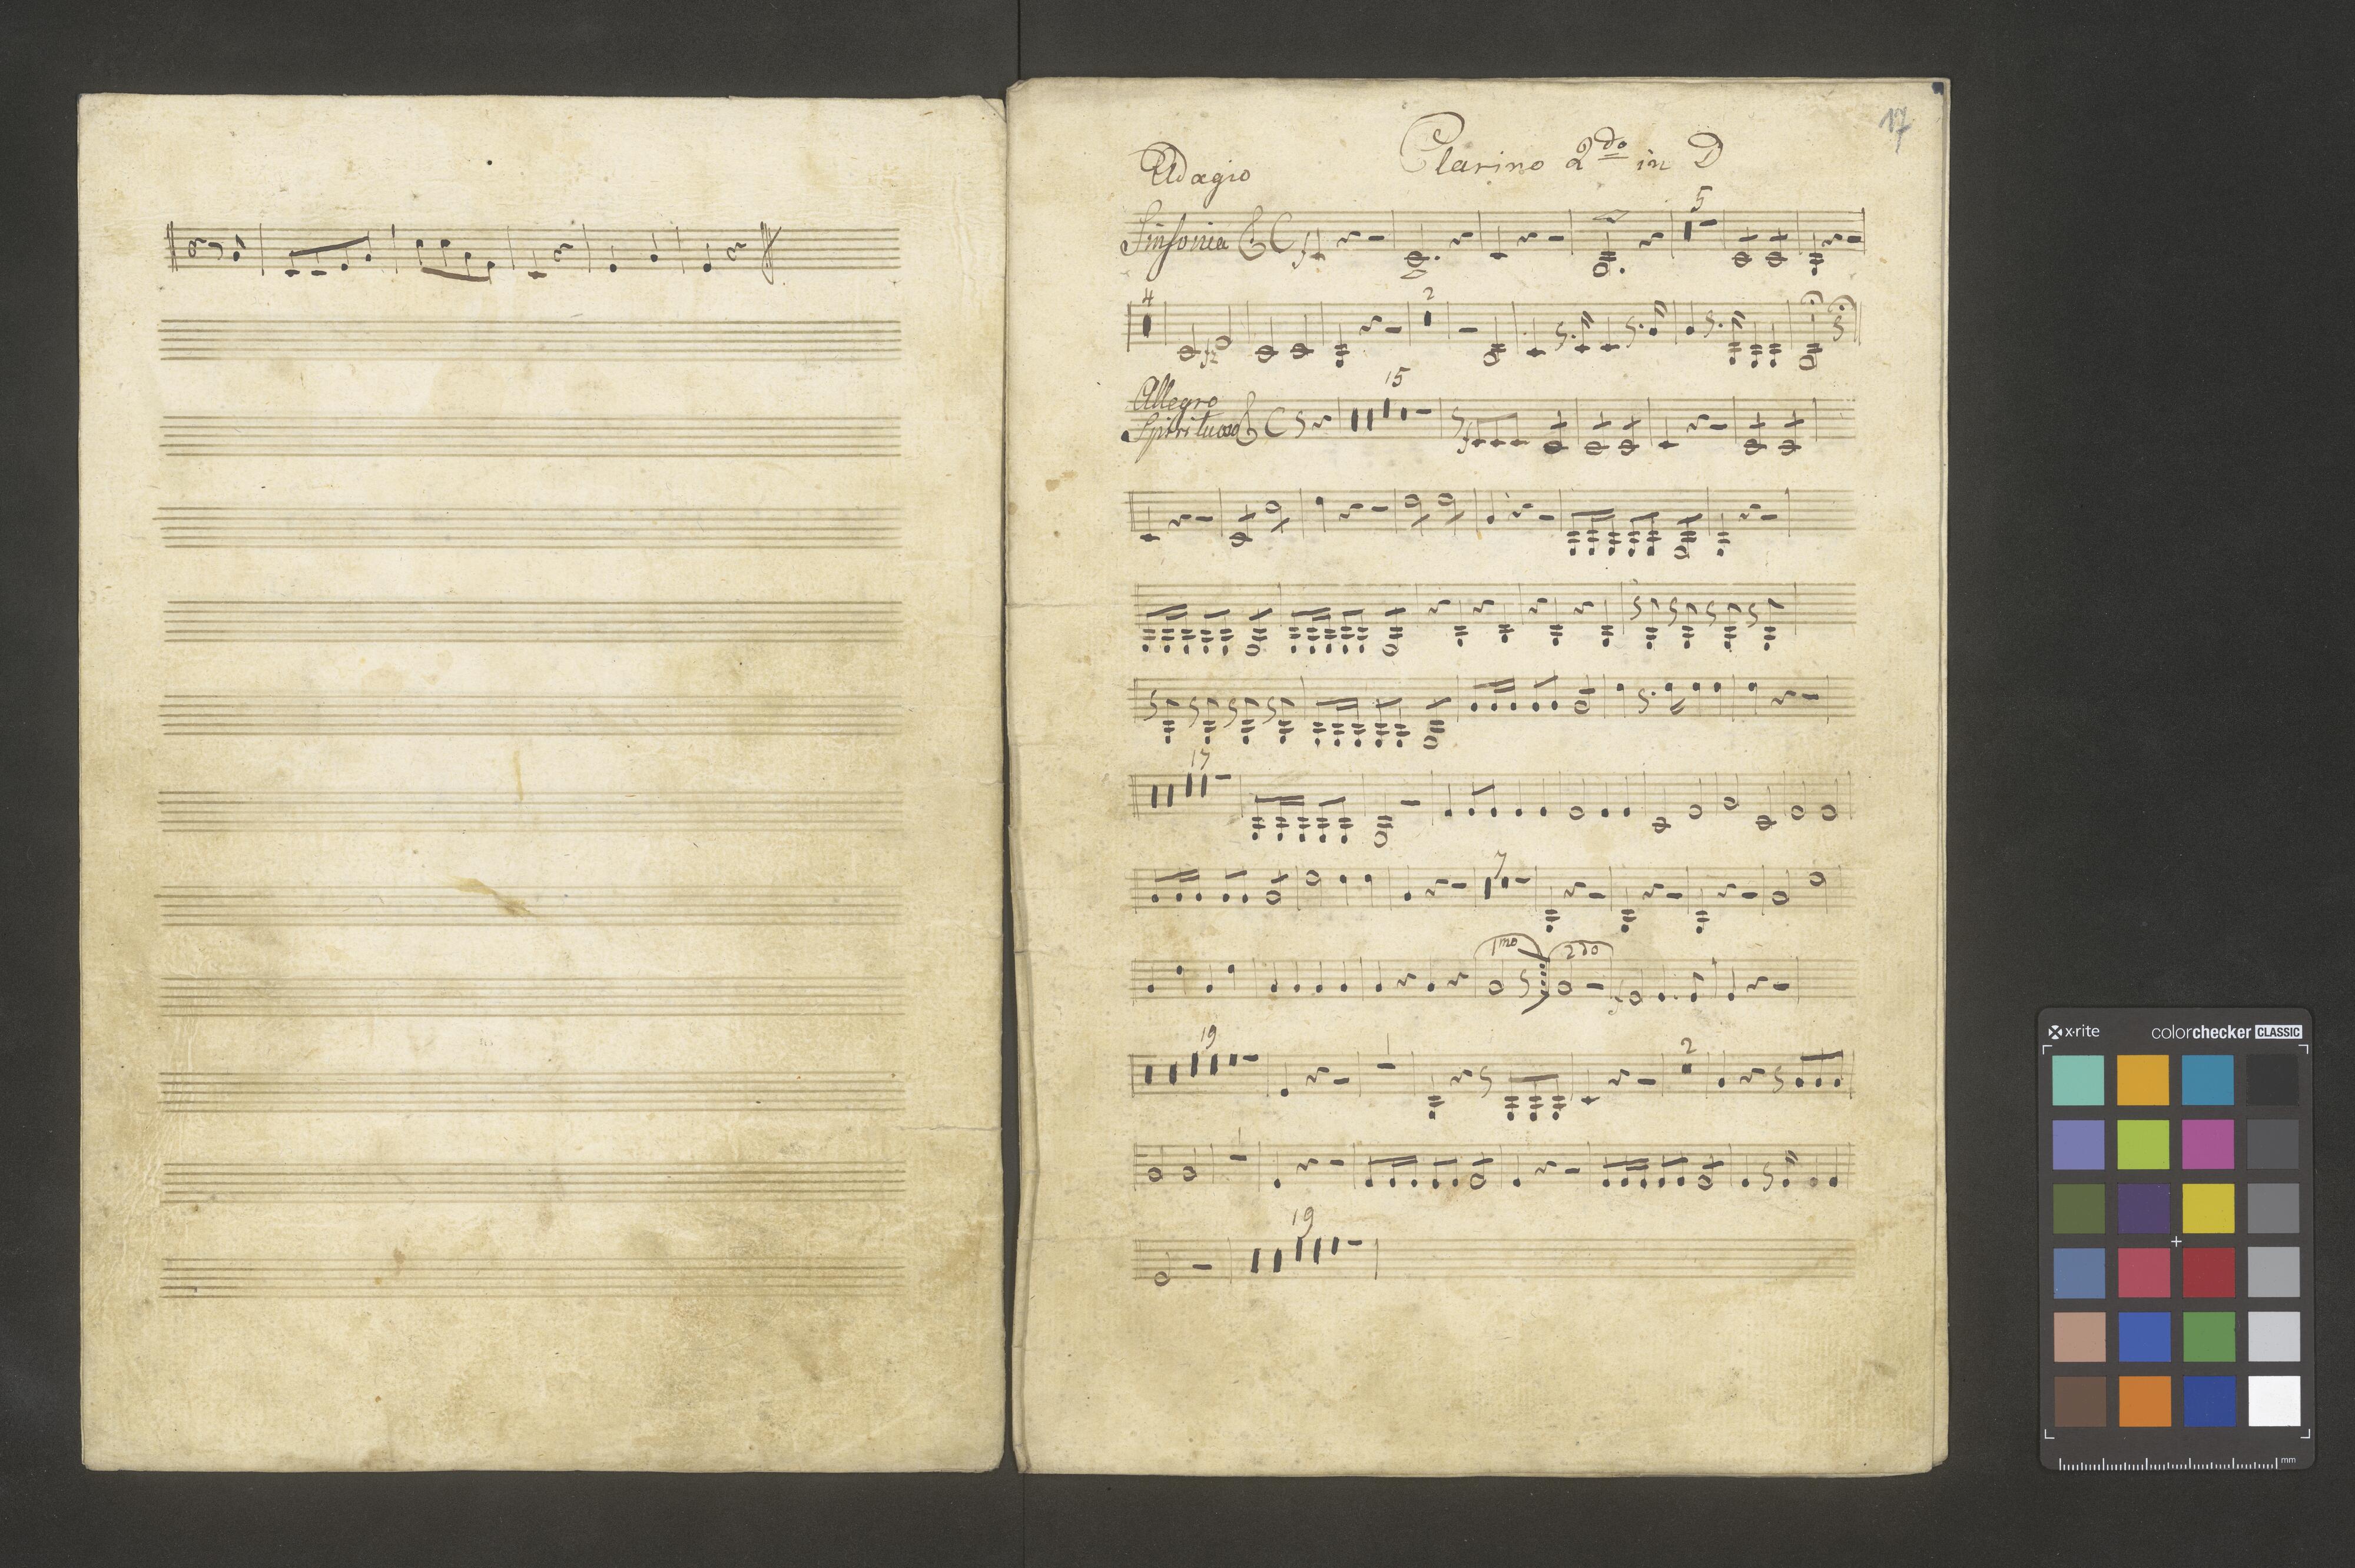 17
Clarino 2do in D
Adagio
Sinfonia
5
4
2
Allegro
Spirituoso
15
17
7
1mo 2do
19
1
2
1
19
x·rite colorchecker CLASSIC
mm